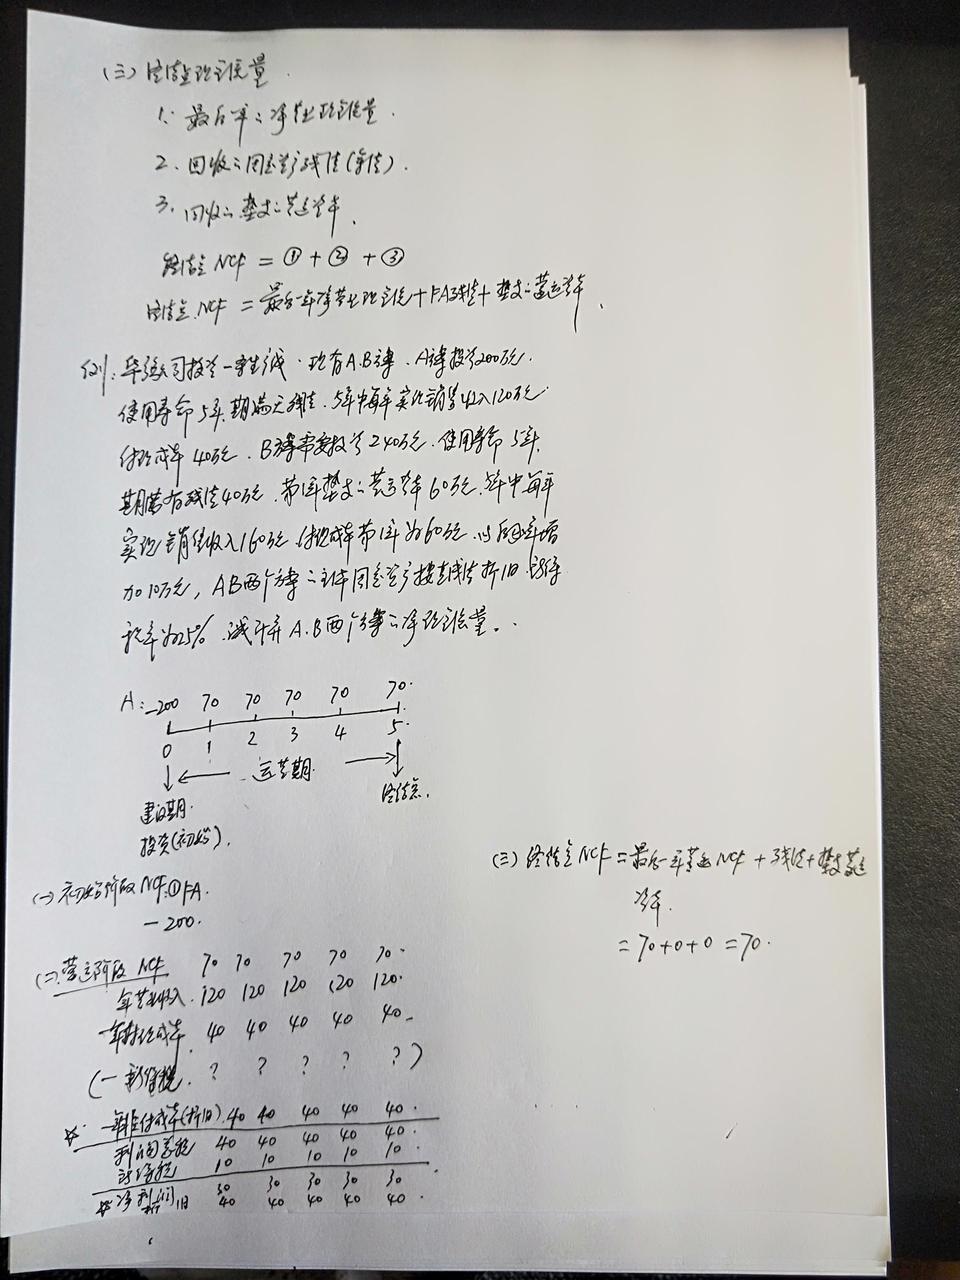 (三)终结点现金流量.
1. 最后一年之净营业现金流量.
2. 回收之固定资产残值(净值).
3. 回收之垫支之营运资本.
终结点 NCF = ① + ② + ③
终结点 NCF = 最后一年净营业现金流+FA残值+垫支之营运资本.
例: 公司投资一条生产线. 现有A.B方案. A方案投资200万元.
使用寿命5年.期满无残值. 5年中每年实现销售收入120万元
付现成本40万元. B方案需要投资240万元. 使用寿命5年.
期满有残值40万元. 第1年垫支之营运资本60万元. 5年中每年
实现销售收入160万元. 付现成本第1年为60万元. 以后逐年增
加10万元, AB两个方案之主体固定资产按直线法折旧. 所得
税率为25%. 试计算A.B两个方案之净现金流量.
A: -200 70 70 70 70 70.
0 1 2 3 4 5.
运营期.
建设期. 终结点.
投资(初始).
(一)初始阶段NCF:①FA.
-200.
(二).营运阶段 NCF 70 70 70 70 70.
年营业收入. 120 120 120 120 120.
-年付现成本. 40 40 40 40 40.
(-所得税. ? ? ? ? ?)
-年非付成本(折旧). 40 40 40 40 40.
利润总额 40 40 40 40 40.
所得税 10 10 10 10 10.
净利润 30 30 30 30 30
折旧 40 40 40 40 40.
(三)终结点NCF=最后一年营运NCF+残值+垫支营运
资本.
= 70+0+0 = 70.